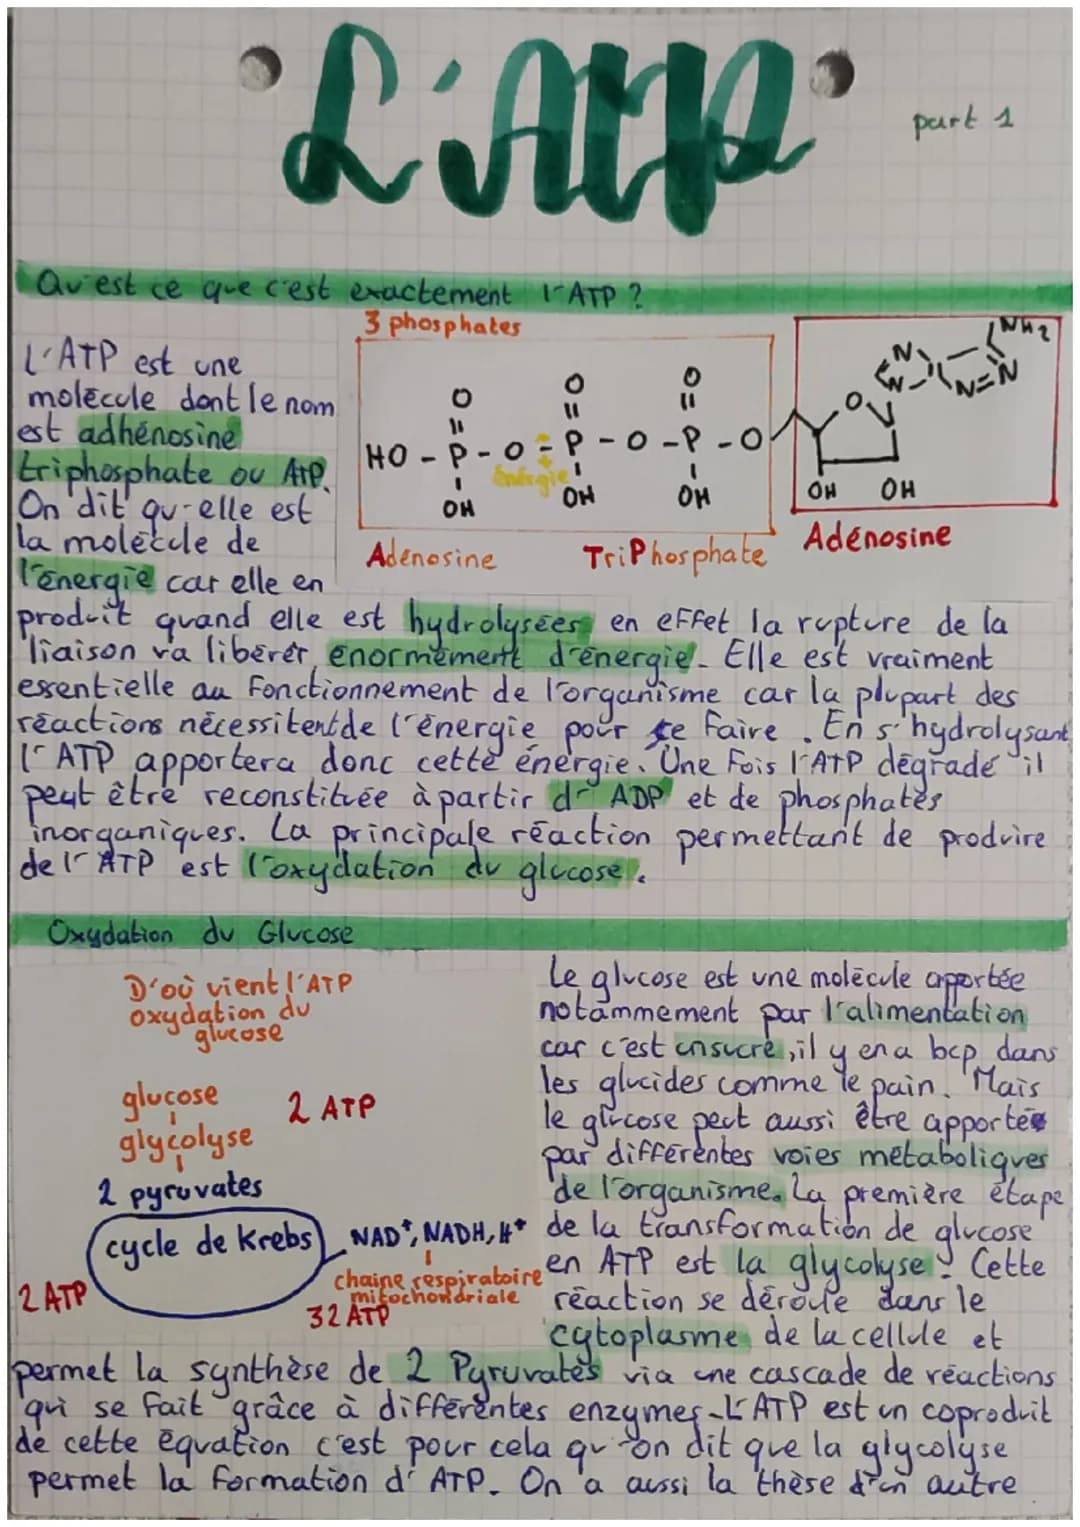 L'ATP
part 1
Qu'est ce que c'est exactement l'ATP ?
3 phosphates
L'ATP est une
molécule dont le nom
est adhénosine
triphosphate ou ATP.
On dit qu'elle est
la molécule de
l'énergie car elle en
O O O
HO - P - O - P - O - P - O
Énergie
OH OH OH
Adénosine TriPhosphate
NH2
N N
N N
O
OH OH
Adénosine
produit quand elle est hydrolysées, en effet la rupture de la
liaison va libérér énormément d'énergie. Elle est vraiment
essentielle au fonctionnement de l'organisme car la plupart des
réactions nécessitent de l'énergie pour se faire. En s'hydrolysant
l'ATP apportera donc cette énergie. Une fois l'ATP dégradé il
peut être reconstituée à partir d' ADP et de phosphates
inorganiques. La principale réaction permettant de produire
de l'ATP est l'oxydation du glucose.
Oxydation du Glucose
D'où vient l'ATP
oxydation du
glucose
glucose
glycolyse
2 ATP
2 pyruvates
cycle de Krebs
NAD+, NADH, H+
chaine respiratoire
mitochondriale
2 ATP
32 ATP
Le glucose est une molécule apportée
notamment par l'alimentation
car c'est un sucre, il y en a bcp dans
les glucides comme le pain. Mais
le glucose peut aussi être apporté
par différentes voies métaboliques
de l'organisme. La première étape
de la transformation de glucose
en ATP est la glycolyse. Cette
réaction se déroule dans le
cytoplasme de la cellule et
permet la synthèse de 2 Pyruvates via une cascade de réactions
qui se fait grâce à différentes enzymes. L'ATP est un coproduit
de cette équation c'est pour cela qu'on dit que la glycolyse
permet la formation d' ATP. On a aussi la thèse d'un autre